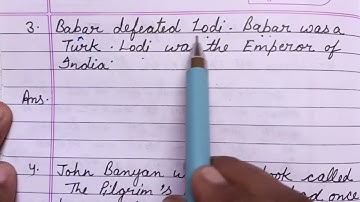 3. Babar defeated Lodi. Babar was a
Turk. Lodi was the Emperor of
India.
Ans.
4. John Banyan w ook called
The Pilgrim's ed once